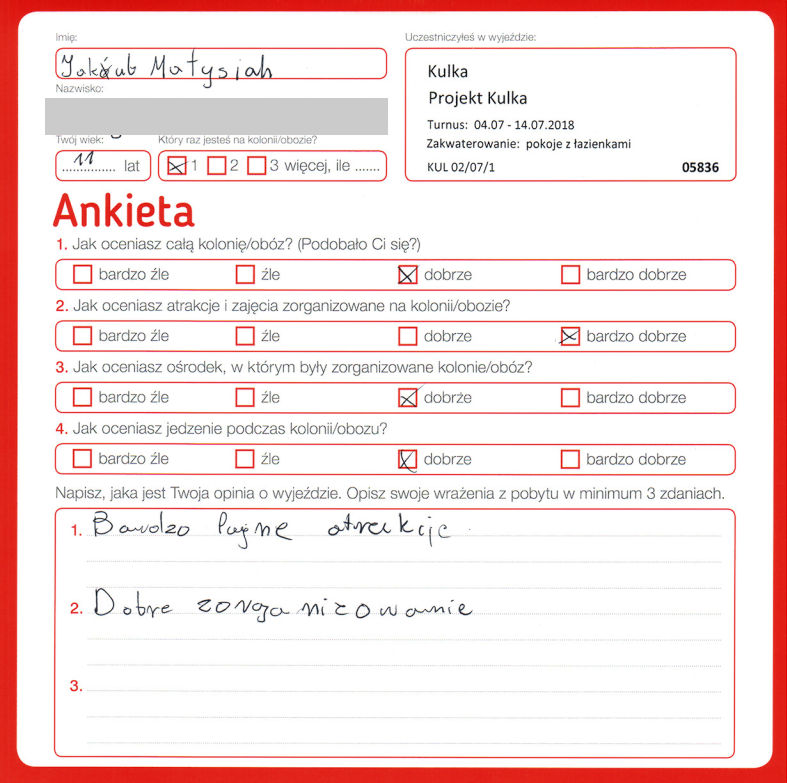 Imię:
Jakub Matysiak
Nazwisko:
Twój wiek:
11 lat
Który raz jesteś na kolonii/obozie?
1 2 3 więcej, ile .......
Uczestniczyłeś w wyjeździe:
Kulka
Projekt Kulka
Turnus: 04.07 - 14.07.2018
Zakwaterowanie: pokoje z łazienkami
KUL 02/07/1 05836
Ankieta
1. Jak oceniasz całą kolonię/obóz? (Podobało Ci się?)
bardzo źle źle dobrze bardzo dobrze
2. Jak oceniasz atrakcje i zajęcia zorganizowane na kolonii/obozie?
bardzo źle źle dobrze bardzo dobrze
3. Jak oceniasz ośrodek, w którym były zorganizowane kolonie/obóz?
bardzo źle źle dobrze bardzo dobrze
4. Jak oceniasz jedzenie podczas kolonii/obozu?
bardzo źle źle dobrze bardzo dobrze
Napisz, jaka jest Twoja opinia o wyjeździe. Opisz swoje wrażenia z pobytu w minimum 3 zdaniach.
1. Bardzo fajne atrakcje
2. Dobre zorganizowanie
3.